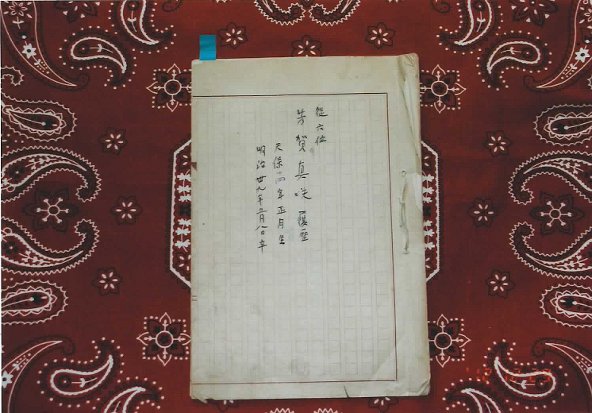 從六位
芳賀真咲履歴
天保 年正月生
明治廿九年 月八日卒